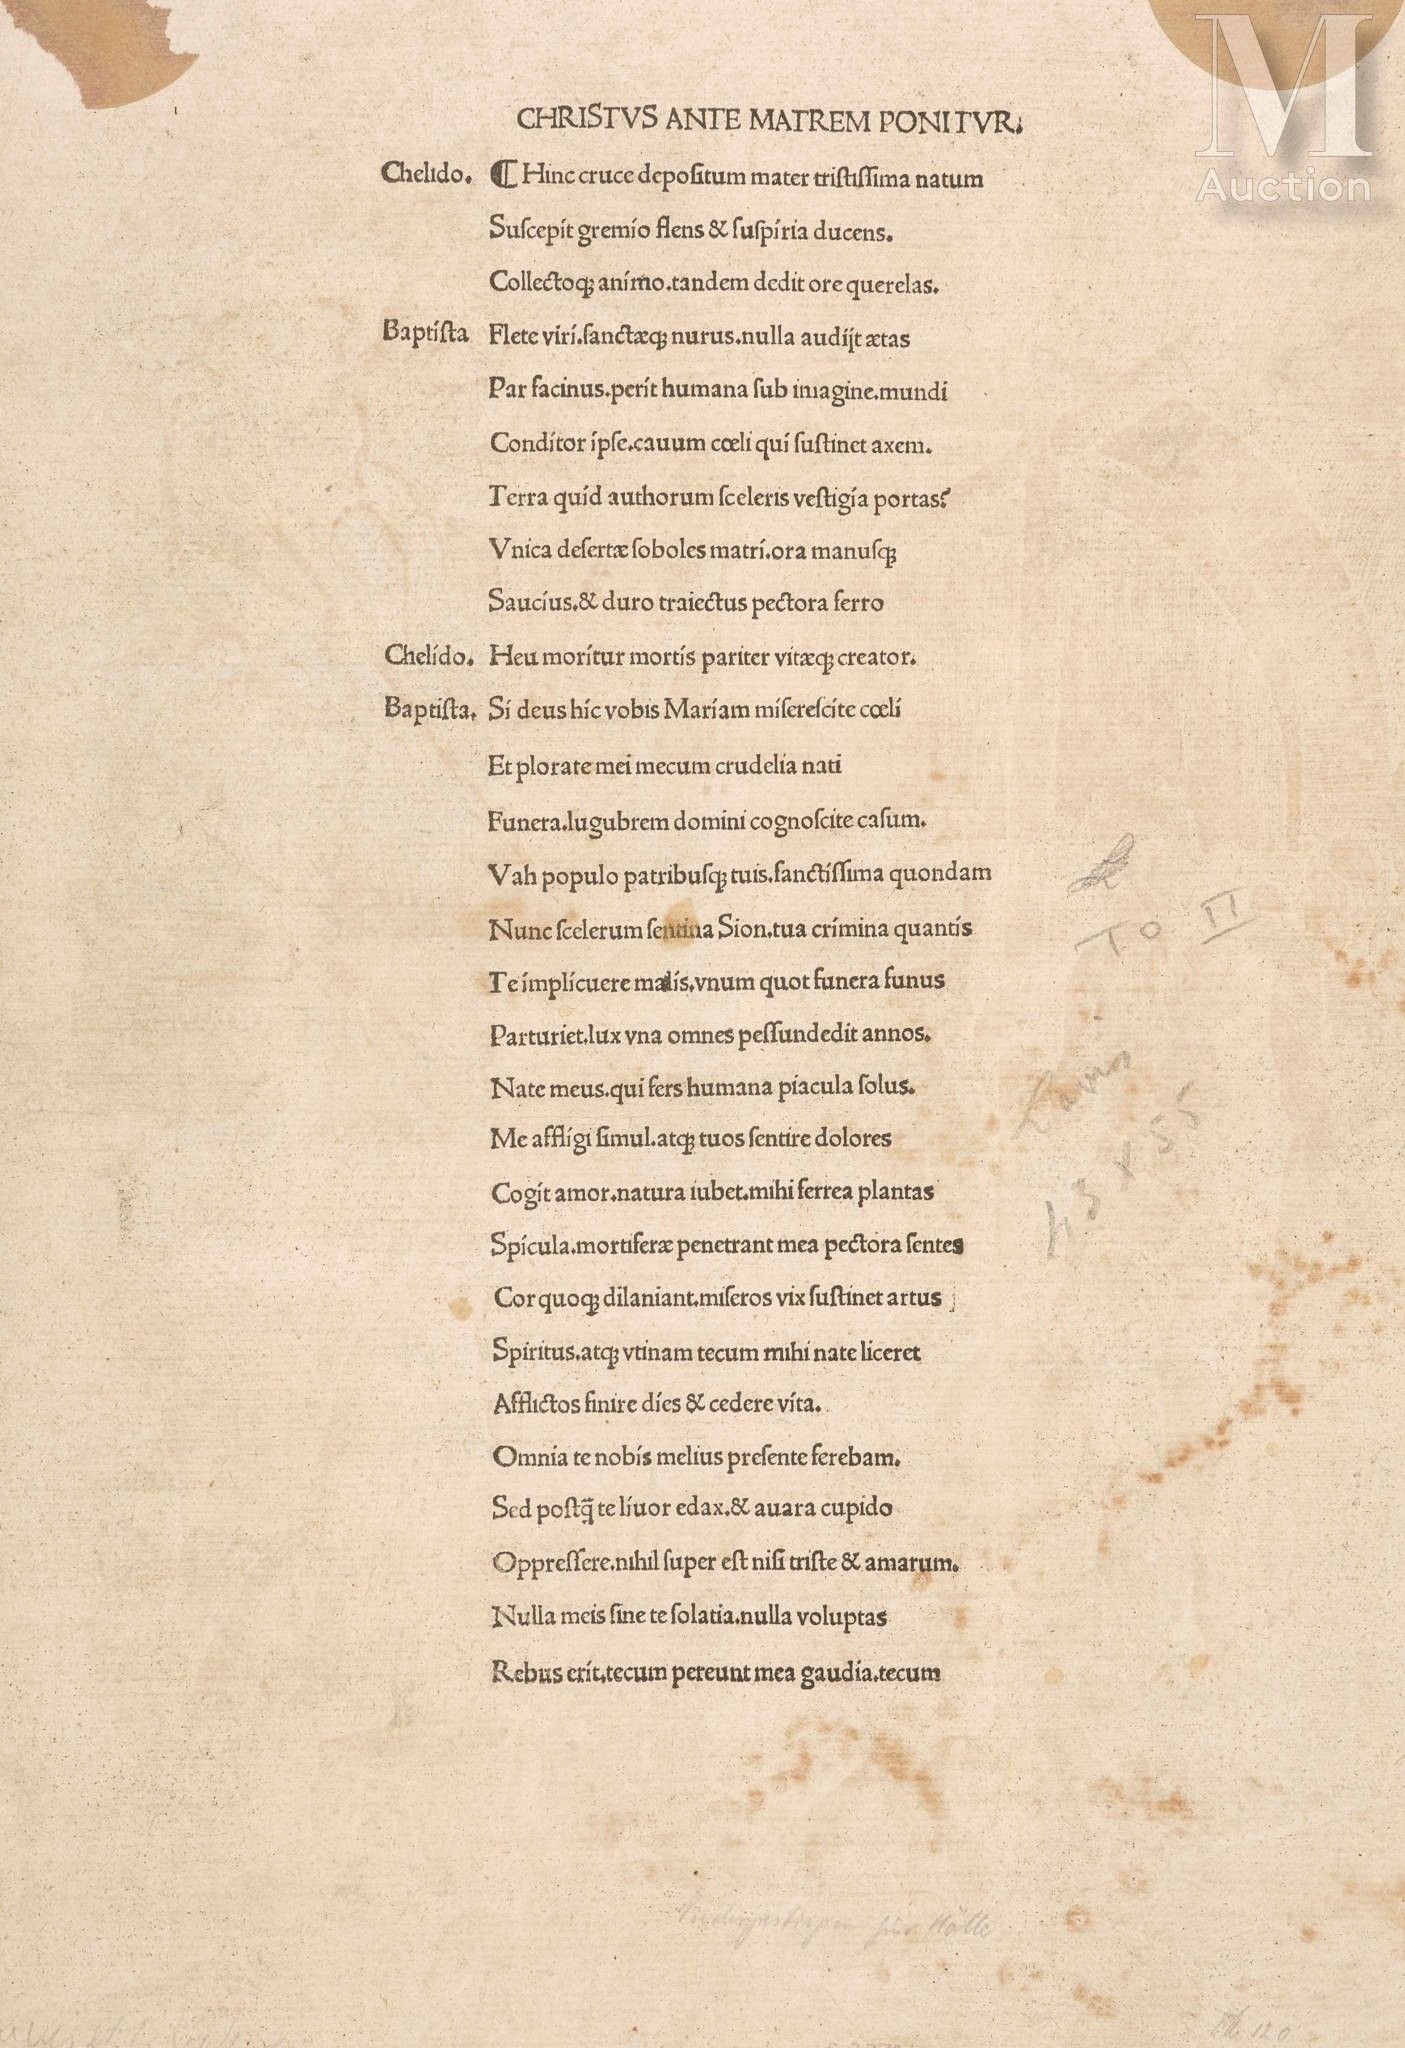 M
Auction
CHRISTVS ANTE MATREM PONITVR.
Chelido. ⁋ Hinc cruce depoſitum mater triſtiſſima natum
Suſcepit gremio flens & ſuſpiria ducens.
Collectoqꝫ animo.tandem dedit ore querelas.
Baptiſta Flete viri.ſanctæqꝫ nurus.nulla audijt ætas
Par facinus.perit humana ſub imagine.mundi
Conditor ipſe.cauum cœli qui ſuſtinet axem.
Terra quid authorum ſceleris veſtigia portas?
Vnica deſertæ ſoboles matri.ora manuſqꝫ
Saucius.& duro traiectus pectora ferro
Chelido. Heu moritur mortis pariter vitæqꝫ creator.
Baptiſta. Si deus hic vobis Mariam miſereſcite cœli
Et plorate mei mecum crudelia nati
Funera.lugubrem domini cognoſcite caſum.
Vah populo patribuſqꝫ tuis.ſanctiſſima quondam
Nunc ſcelerum ſentina Sion.tua crimina quantis
Te implicuere malis.vnum quot funera funus
Parturiet.lux vna omnes peſſundedit annos.
Nate meus.qui fers humana piacula ſolus.
Me affligi ſimul.atqꝫ tuos ſentire dolores
Cogit amor.natura iubet.mihi ferrea plantas
Spicula.mortiferæ penetrant mea pectora ſentes
Cor quoqꝫ dilaniant.miſeros vix ſuſtinet artus
Spiritus.atqꝫ vtinam tecum mihi nate liceret
Afflictos finire dies & cedere vita.
Omnia te nobis melius preſente ferebam.
Sed poſtq̃ te liuor edax.& auara cupido
Oppreſſere.nihil ſuper eſt niſi triſte & amarum.
Nulla meis ſine te ſolatia.nulla voluptas
Rebus erit.tecum pereunt mea gaudia.tecum
TO II
43 x 55
für Hölle
120